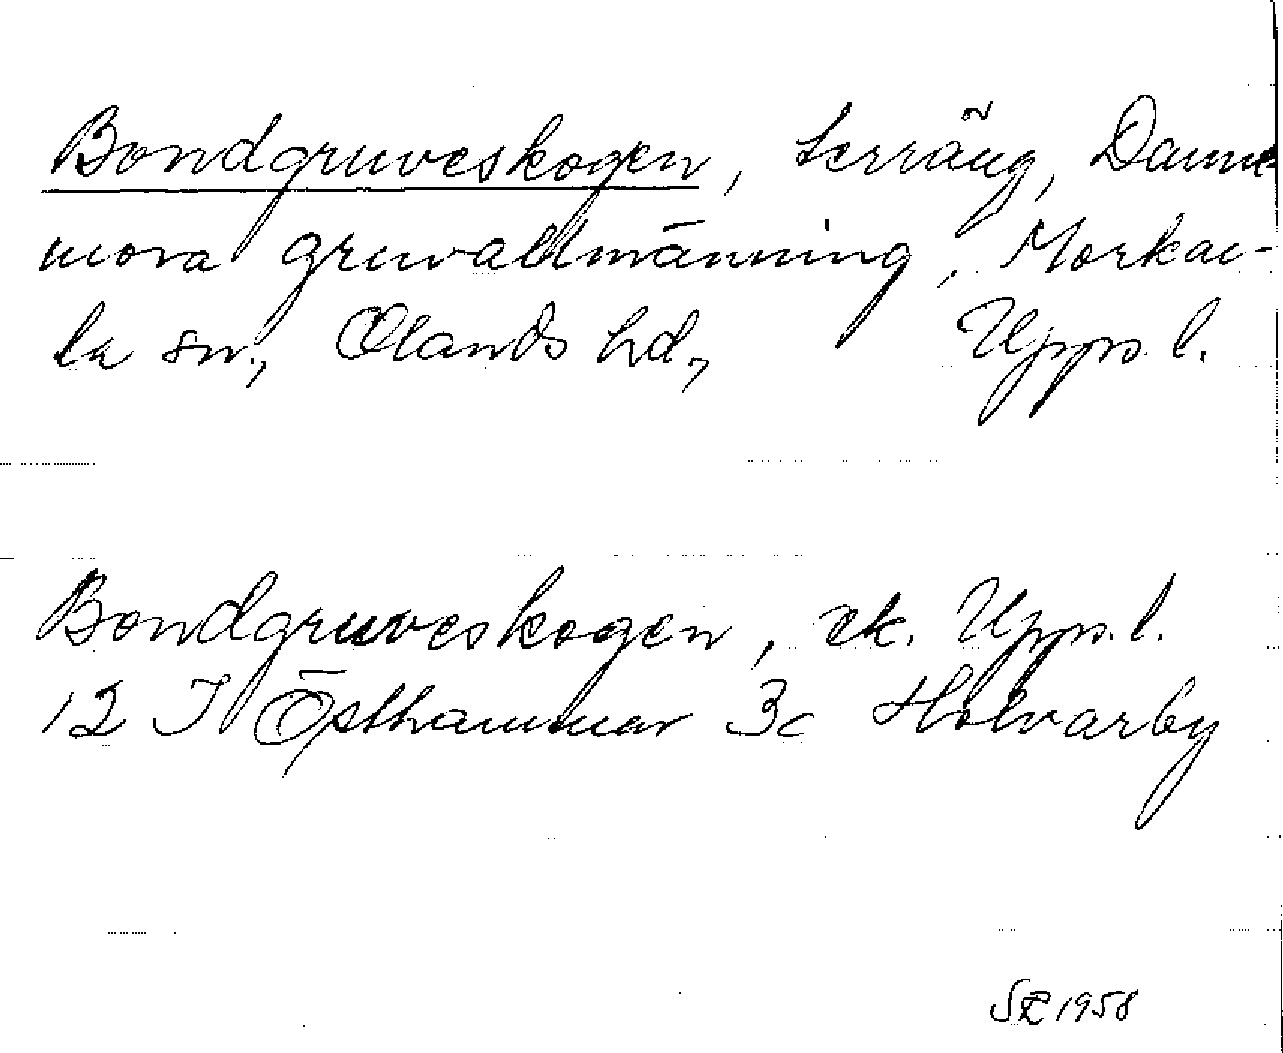 Bondgruveskogen, terräng, Danne
mora gruvallmänning, Morkar-
la sn, Olands hd, Upps. l.
Bondgruveskogen, ek. Upps. l.
12 I Östhammar 3c Hölvarby
1958